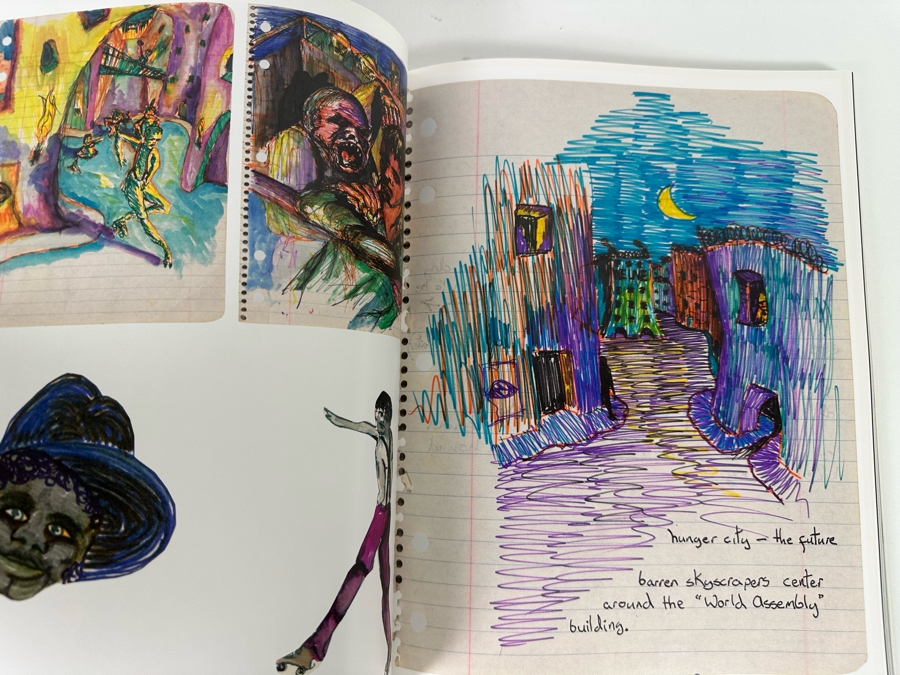 hunger city – the future
barren skyscrapers center
around the "World Assembly"
building.